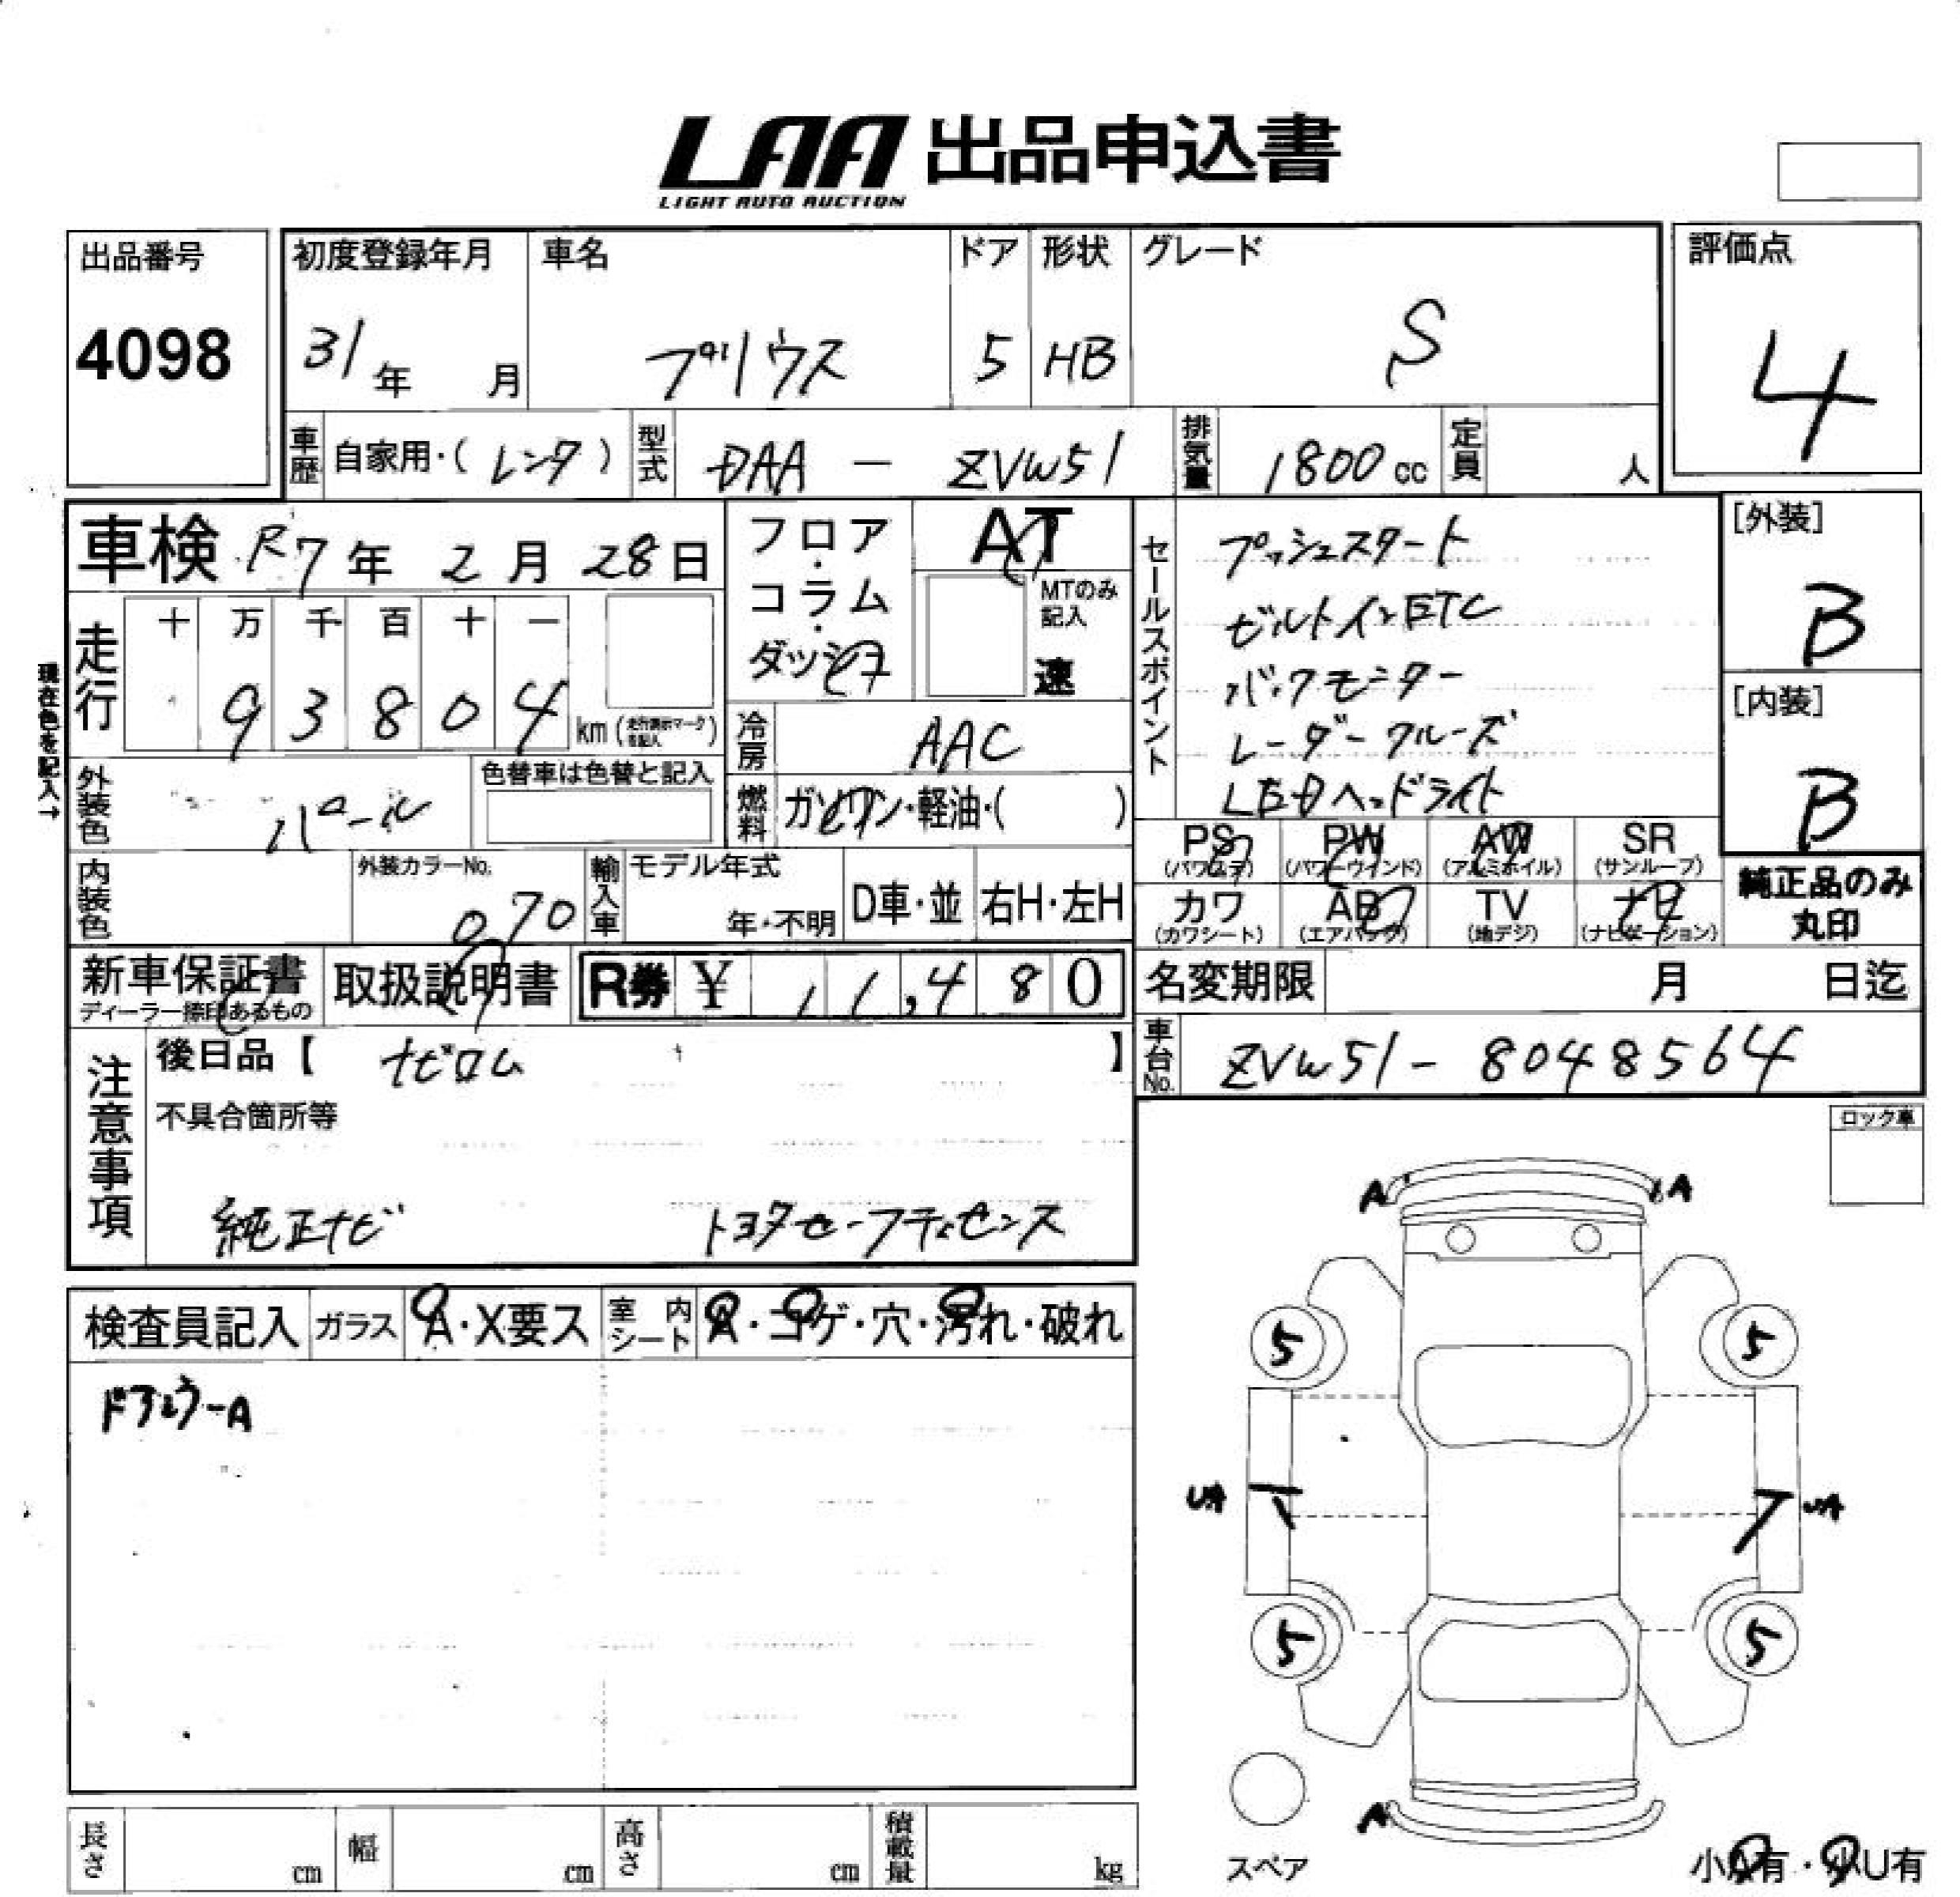 LAA 出品申込書
LIGHT AUTO AUCTION
出品番号
4098
初度登録年月
31年 月
車名
プリウス
ドア
5
形状
HB
グレード
S
評価点
4
車歴 自家用・(レンタ)
型式 DAA - ZVW51
排気量 1800cc
定員 人
車検 R7年 2月 28日
フロア・コラム・ダッシュ
AT
MTのみ記入
速
走行
十 万 千 百 十 一
9 3 8 0 4 km (走行表示マークを記入)
現在色を記入→
外装色 パール
色替車は色替と記入
冷房 AAC
燃料 ガソリン・軽油・( )
内装色
外装カラーNo.
070
輸入車
モデル年式
年・不明
D車・並
右H・左H
セールスポイント
プッシュスタート
ビルトインETC
バックモニター
レーダークルーズ
LEDヘッドライト
[外装]
B
[内装]
B
PS (パワステ)
PW (パワーウインド)
AW (アルミホイル)
SR (サンルーフ)
カワ (カワシート)
AB (エアバック)
TV (地デジ)
ナビ (ナビゲーション)
純正品のみ
丸印
新車保証書
ディーラー捺印あるもの
取扱説明書
R券 ¥ 11,480
名変期限 月 日迄
車台No. ZVW51-8048564
注意事項
後日品【 ナビロム 】
不具合箇所等
純正ナビ トヨタセーフティセンス
ロック車
検査員記入
ガラス A・X要ス
室内シート A・コゲ・穴・汚れ・破れ
ドアミラーA
A A
5 5
UA UA
5 5
A
スペア
小A有・小U有
長さ cm
幅 cm
高さ cm
積載量 kg